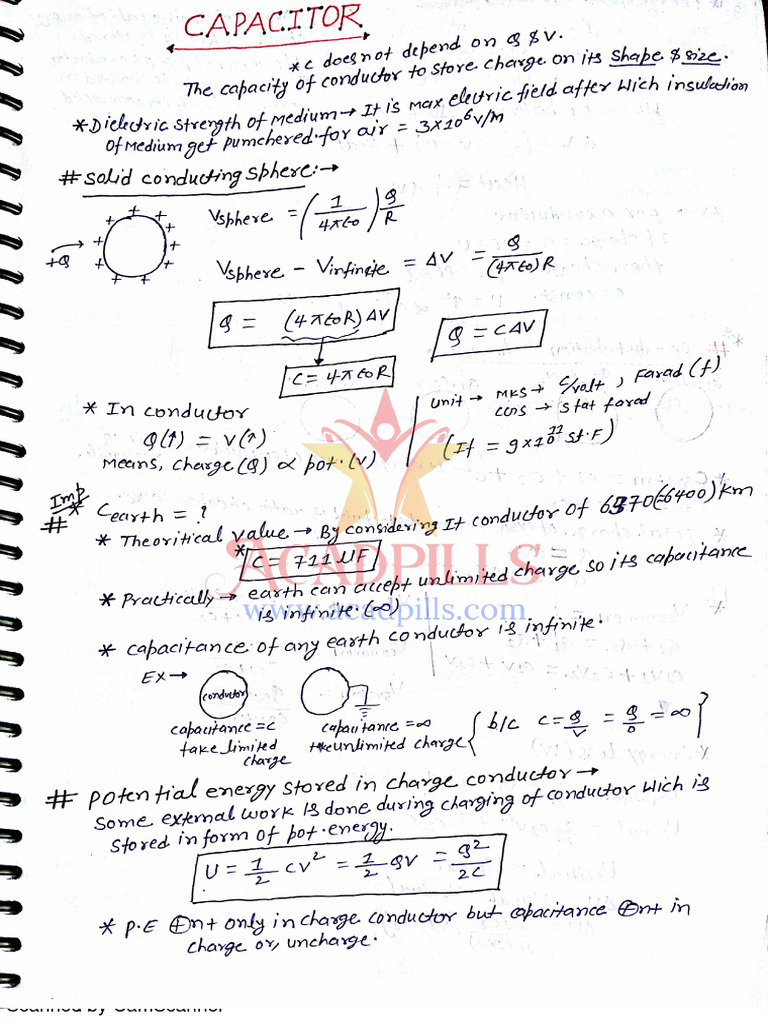 CAPACITOR
* C does not depend on Q & V.
The capacity of conductor to store charge on its shape & size.
* Dielectric strength of Medium → It is max electric field after wich insulation
of Medium get pumchered. for air = 3×10⁶ V/m
# Solid conducting Sphere:→
+Q
V sphere = (1/4πε0) Q/R
V sphere − V infinite = ΔV = Q/(4πε0)R
Q = (4πε0R) ΔV
Q = CΔV
C = 4πε0R
* In conductor
Q(↑) = V(↑)
Means, charge (Q) ∝ pot. (V)
Unit → MKS → C/volt, Farad (f)
CGS → Stat farad
(1f = 9×10¹¹ st.F)
Imp
# * C earth = ?
* Theoritical value → By considering It conductor of 6370(≈6400) km
* C = 711 μF
* Practically → earth can accept unlimited charge so its capacitance
is infinite. (∞)
* Capacitance of any earth conductor is infinite.
Ex →
conductor
capacitance = C
take limited
charge
capacitance = ∞
take unlimited charge
{ b/c C = Q/V = Q/0 = ∞ }
# Potential energy stored in charge conductor →
Some external work is done during charging of conductor wich is
stored in form of pot. energy.
U = 1/2 CV² = 1/2 QV = Q²/2C
* P.E ⊕nt only in charge conductor but capacitance ⊕nt in
charge or, uncharge.
ACADPILLS
www.acadpills.com
Scanned by CamScanner